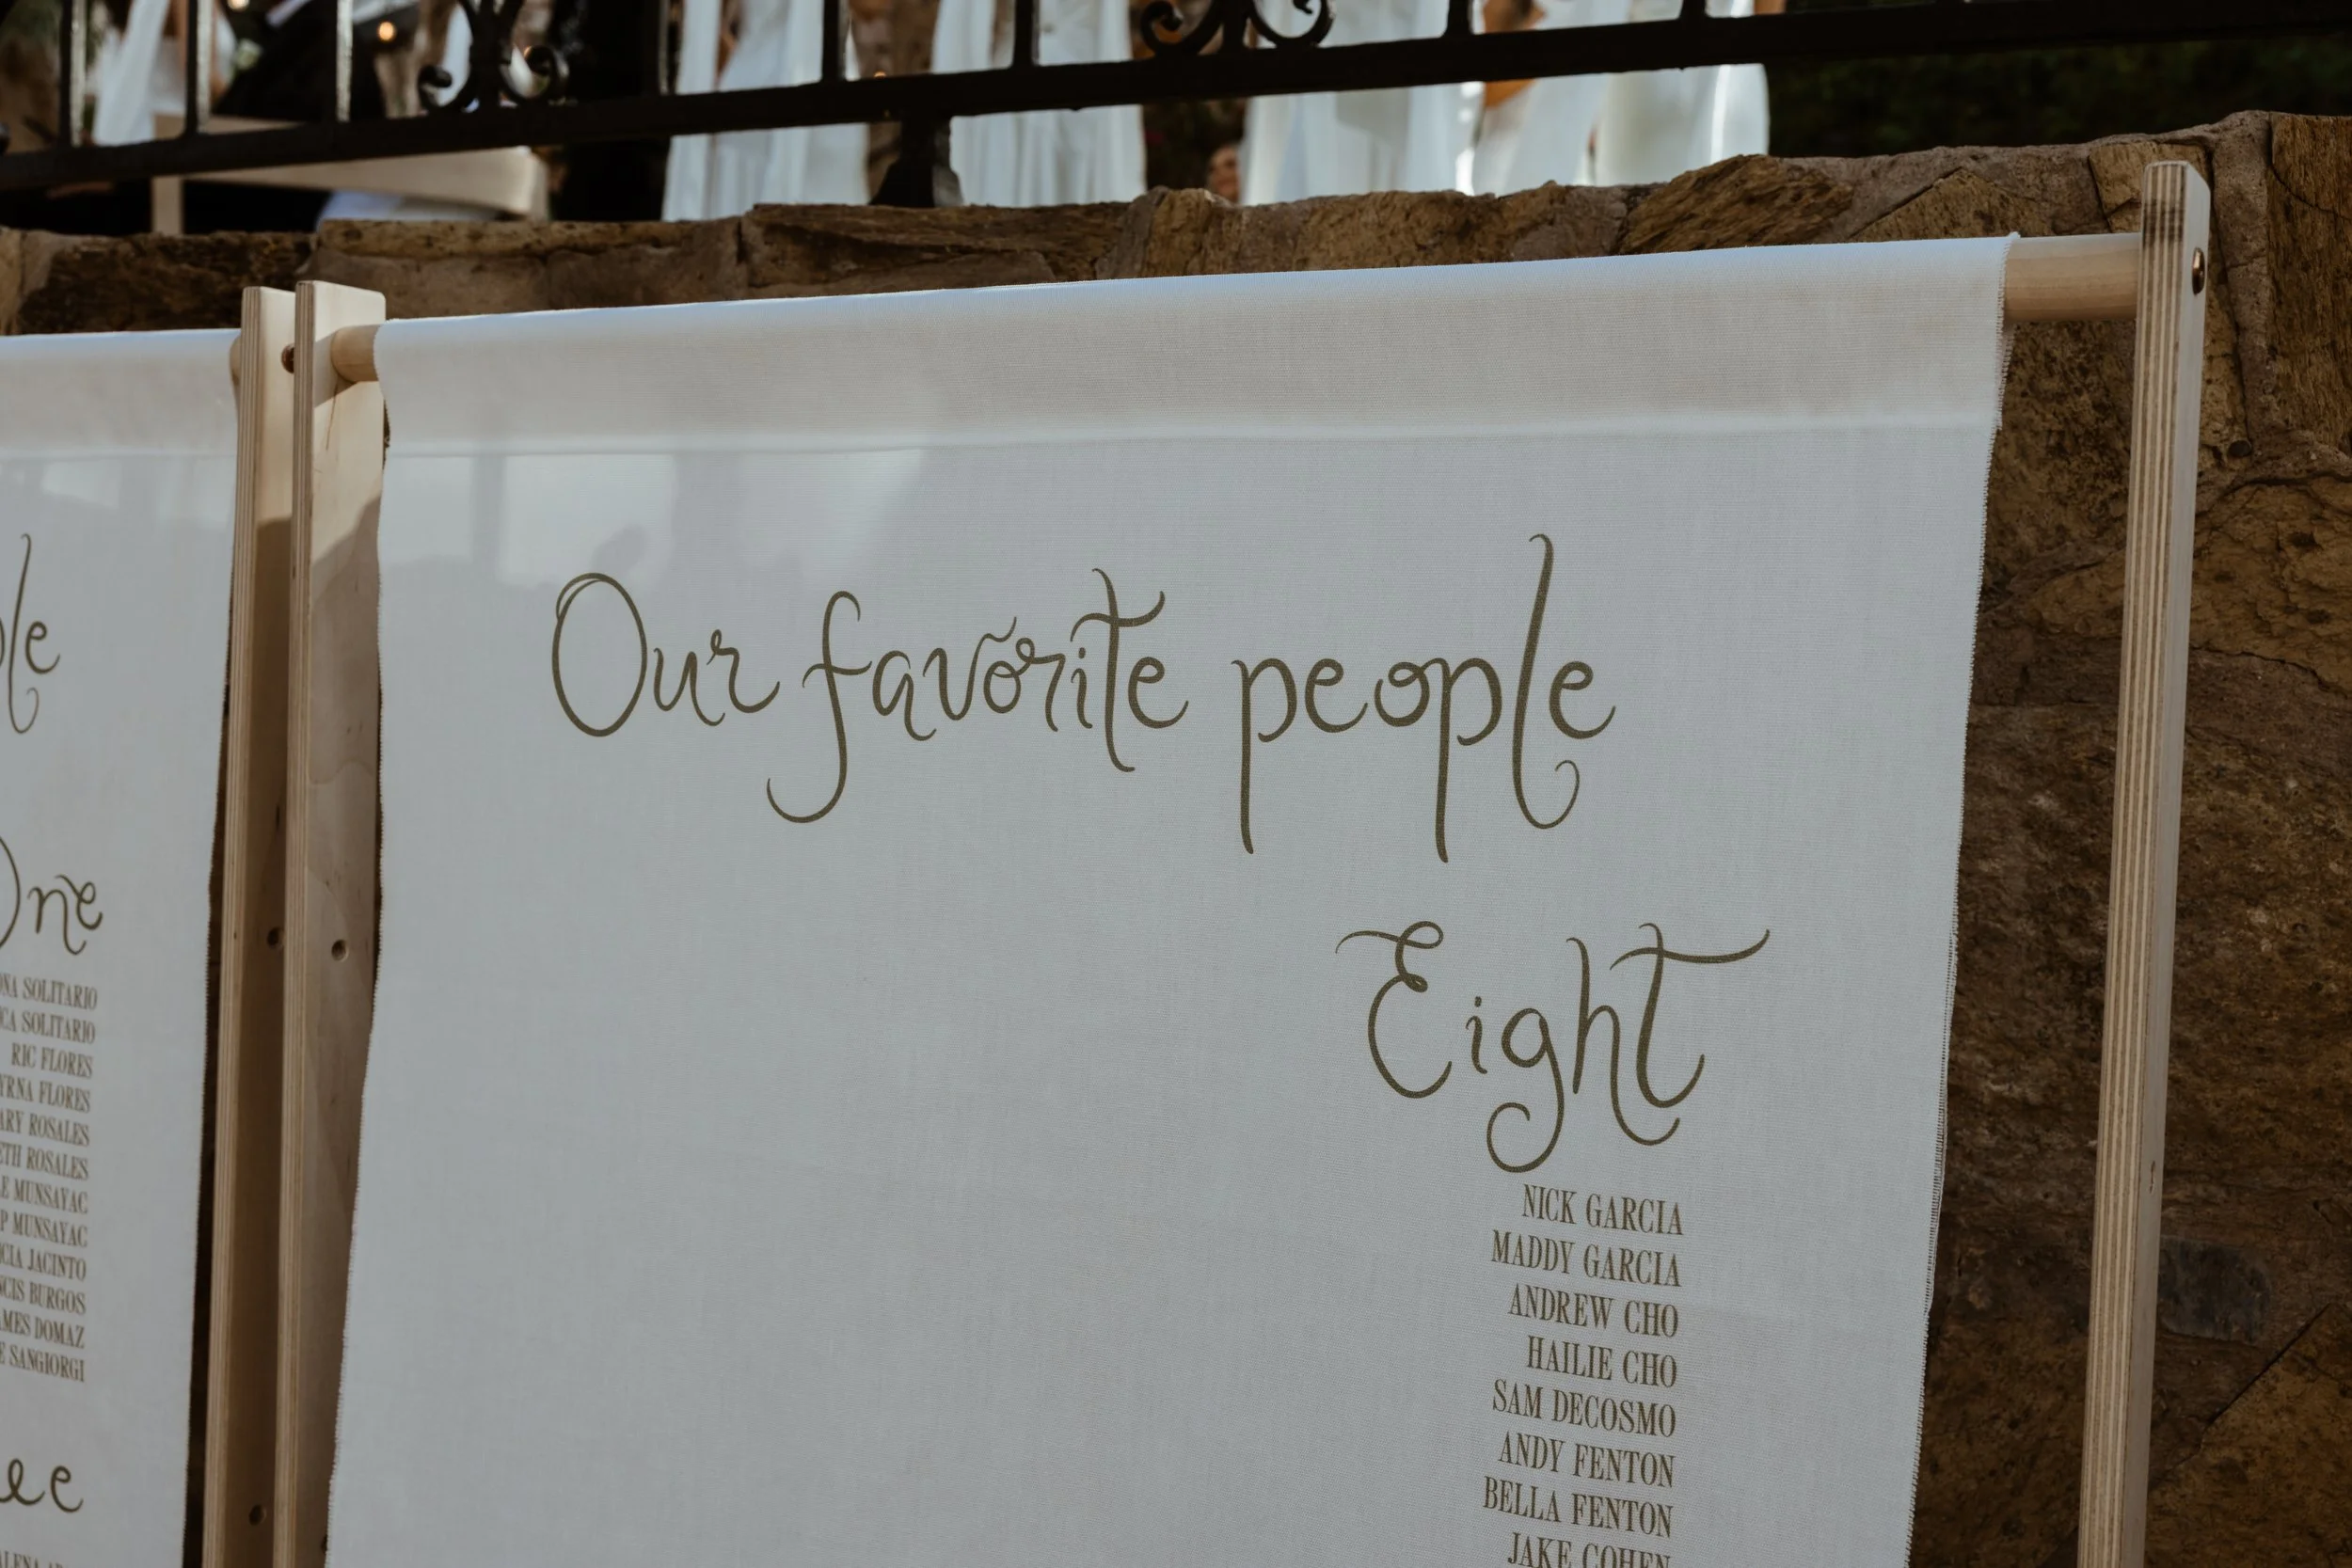 One
SOLITARIO
SOLITARIO
RIC FLORES
FLORES
ROSALES
ROSALES
MUNSAYAC
MUNSAYAC
JACINTO
BURGOS
DOMAZ
SANGIORGI
Our favorite people
Eight
NICK GARCIA
MADDY GARCIA
ANDREW CHO
HAILIE CHO
SAM DECOSMO
ANDY FENTON
BELLA FENTON
JAKE COHEN